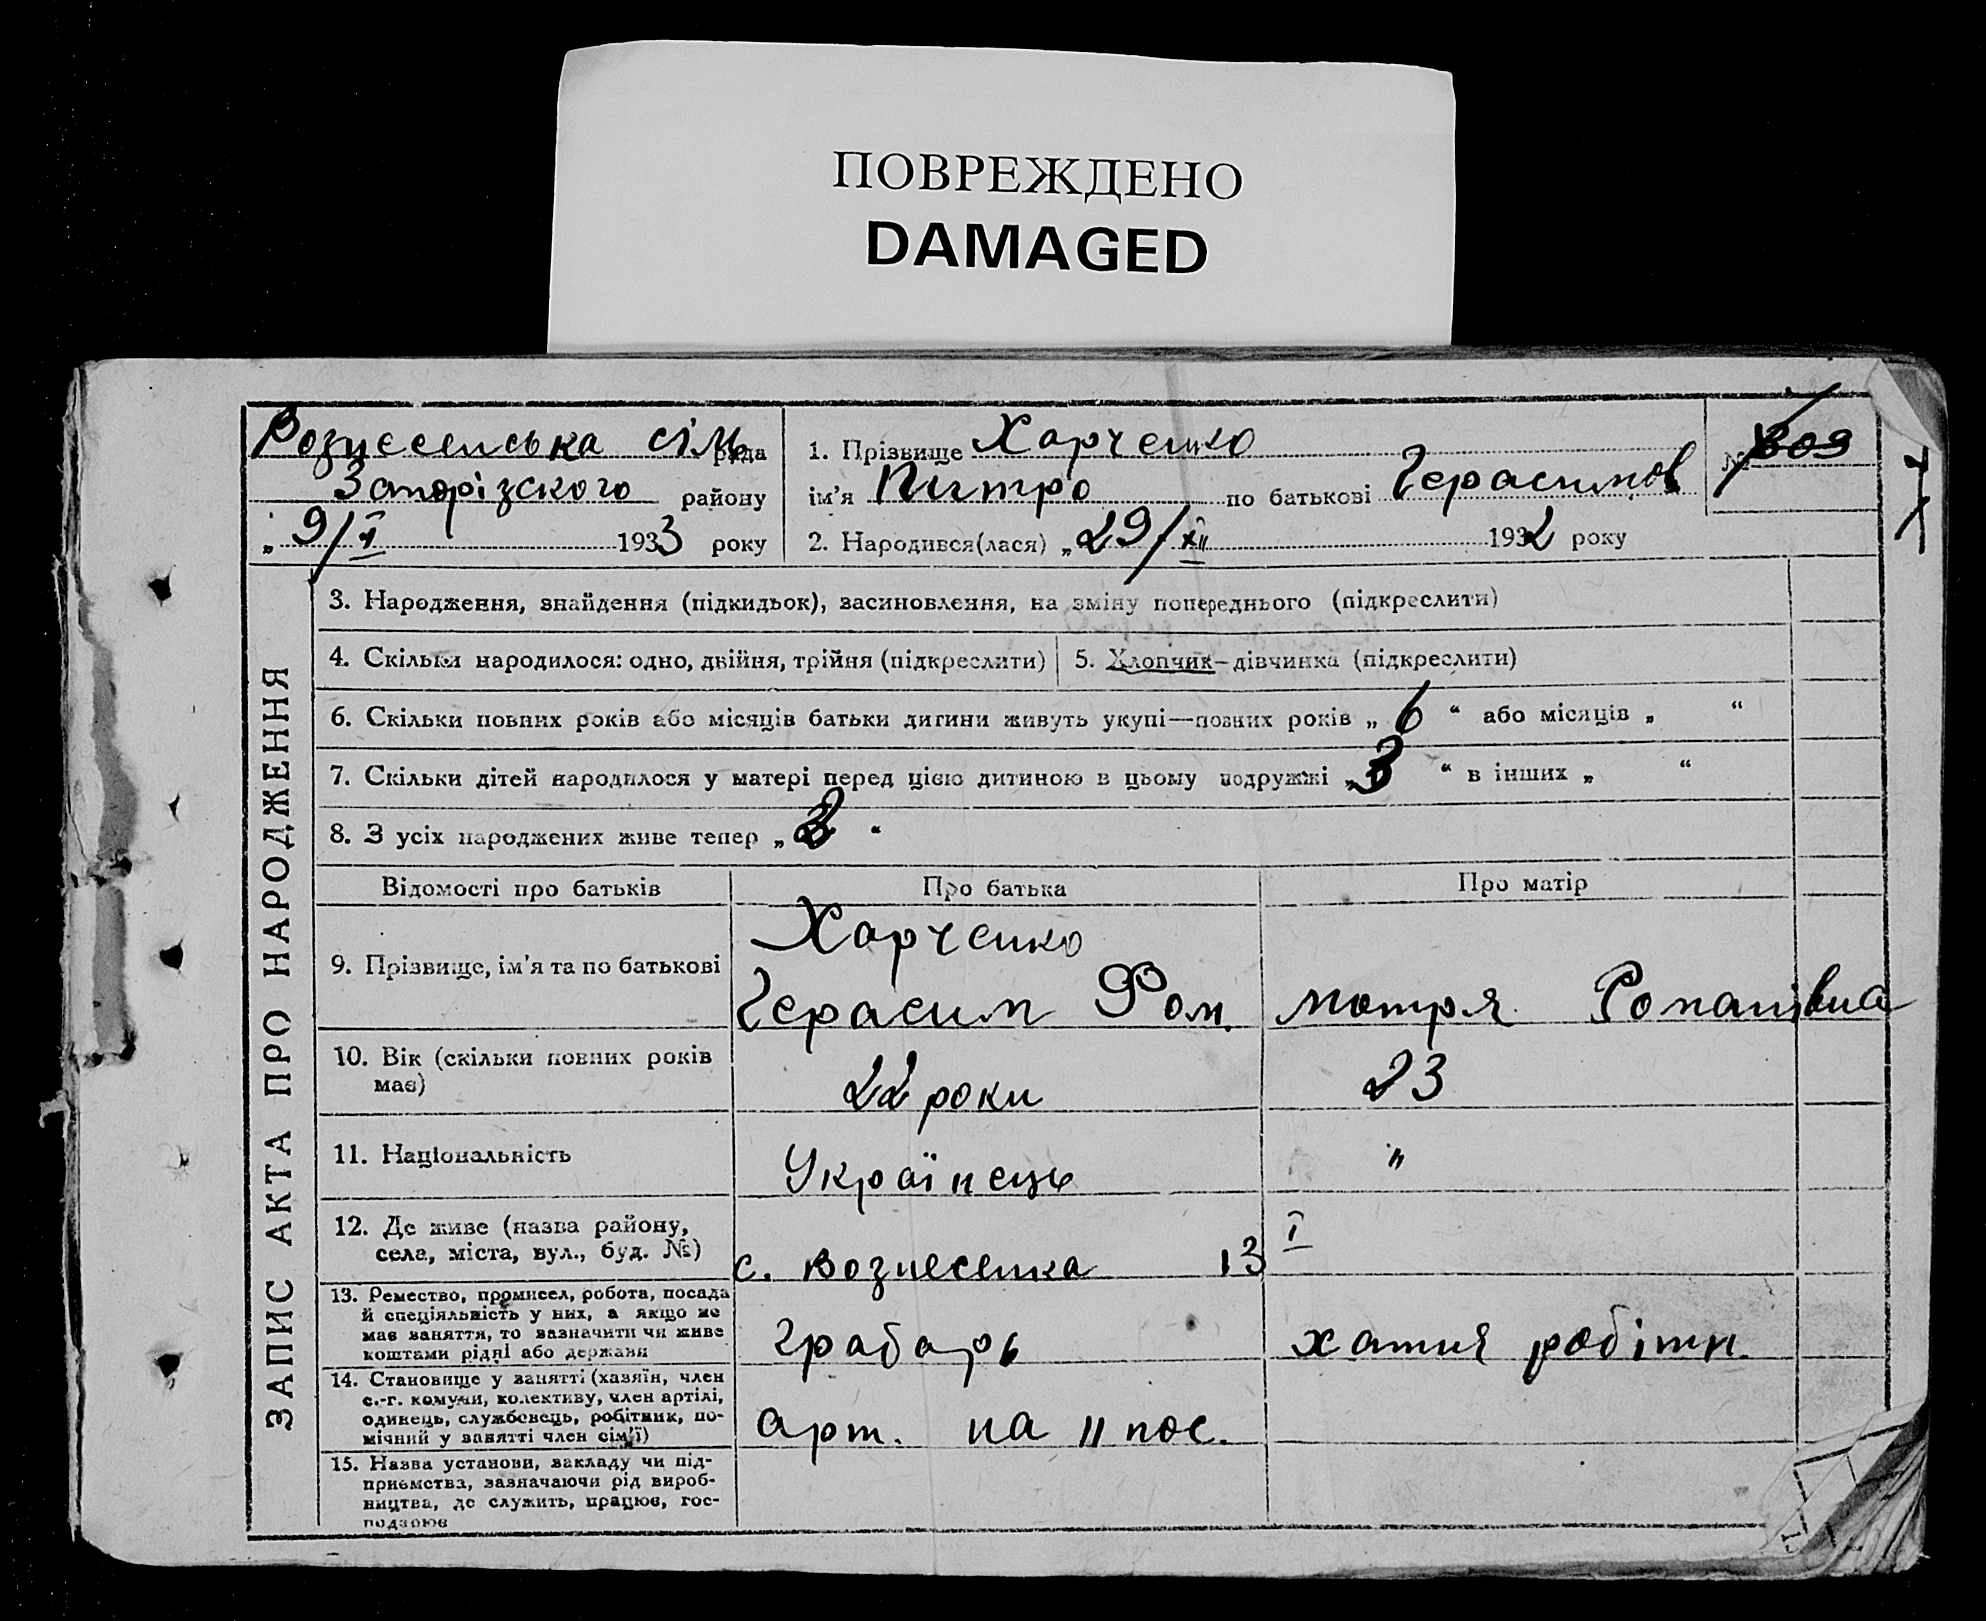 ПОВРЕЖДЕНО
DAMAGED
Вознесенська сіль рада
Запорізского району
„ 9/I 1933 року
1. Прізвище Харченко
ім'я Питро по батькові Герасимов
2. Народився(лася) „ 29/XII 1932 року
№
ЗАПИС АКТА ПРО НАРОДЖЕННЯ
3. Народження, знайдення (підкидьок), засиновлення, на зміну попереднього (підкреслити)
4. Скільки народилося: одно, двійня, трійня (підкреслити)
5. Хлопчик–дівчинка (підкреслити)
6. Скільки повних років або місяців батьки дитини живуть укупі—повних років „ 6 “ або місяців „ “
7. Скільки дітей народилося у матері перед цією дитиною в цьому подружжі „ 3 “ в інших „ “
8. З усіх народжених живе тепер „ “
Відомості про батьків
Про батька
Про матір
9. Прізвище, ім'я та по батькові
Харченко
Герасим Ром.
Мотря Романівна
10. Вік (скільки повних років
має)
22 роки
23
11. Національність
Українець
"
12. Де живе (назва району,
села, міста, вул., буд. №)
с. Вознесенка 13
I
13. Ремество, промисел, робота, посада
й спеціяльність у них, а якщо не
має заняття, то зазначити чи живе
коштами рідні або держави
Грабарь
хатня робітн.
14. Становище у занятті (хазяїн, член
с.-г. комуни, колективу, член артілі,
одинець, службовець, робітник, по-
мічний у занятті член сім'ї)
арт. на II пос.
15. Назва установи, закладу чи під-
приємства, зазначаючи рід вироб-
ництва, де служить, працює, гос-
подарює